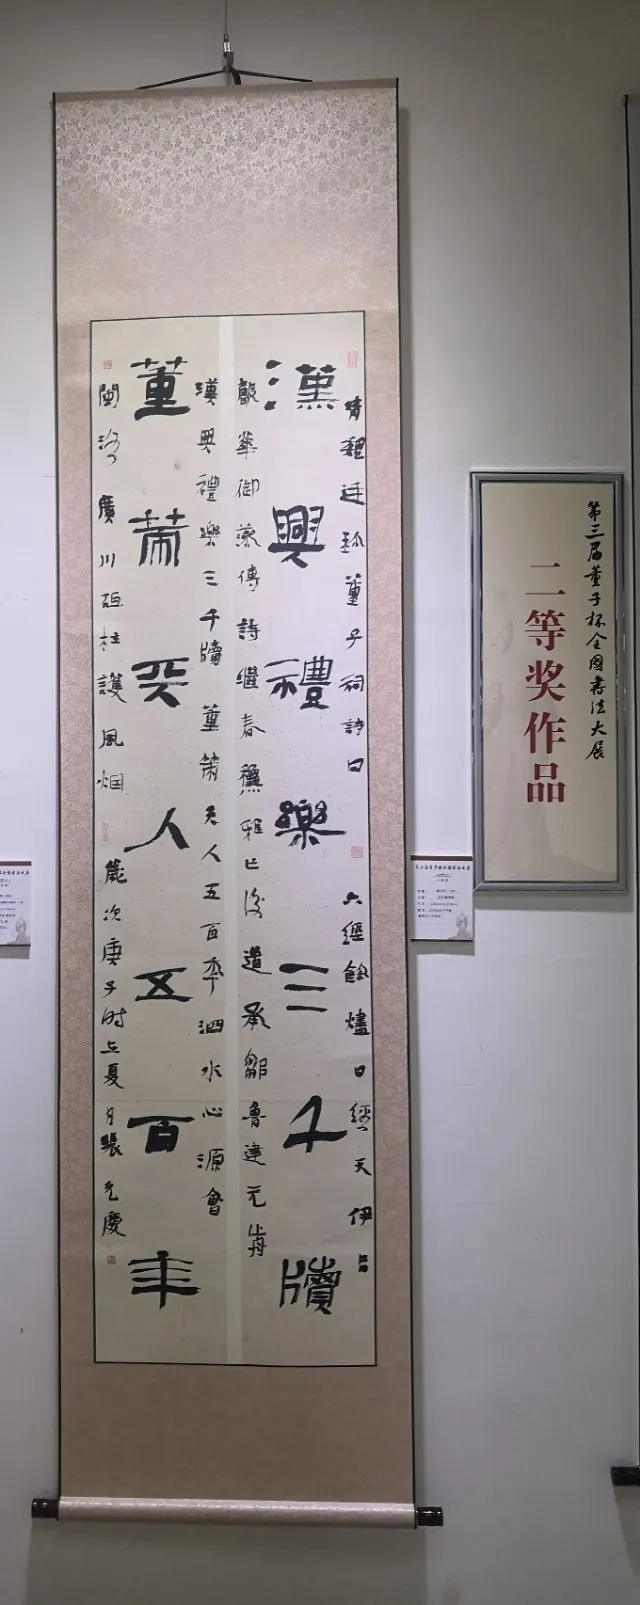 漢興禮樂三千牘
董策天人五百年
清魏廷珍董子祠詩曰 六經餘燼日經天伊呂
巖華御藻傳詩繼春穠雅亡後遺承鄒魯建元前
漢興禮樂三千牘董策天人五百季泗水心源會
閩洛廣川砥柱護風烟 歲次庚子時在夏月張元慶
第三届董子杯全国書法大展
二等奖作品